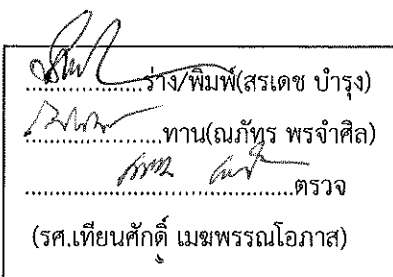 ....................ร่าง/พิมพ์(สรเดช บำรุง)
....................ทาน(ณภัทร พรจำศิล)
........................................ตรวจ
(รศ.เทียนศักดิ์ เมฆพรรณโอภาส)